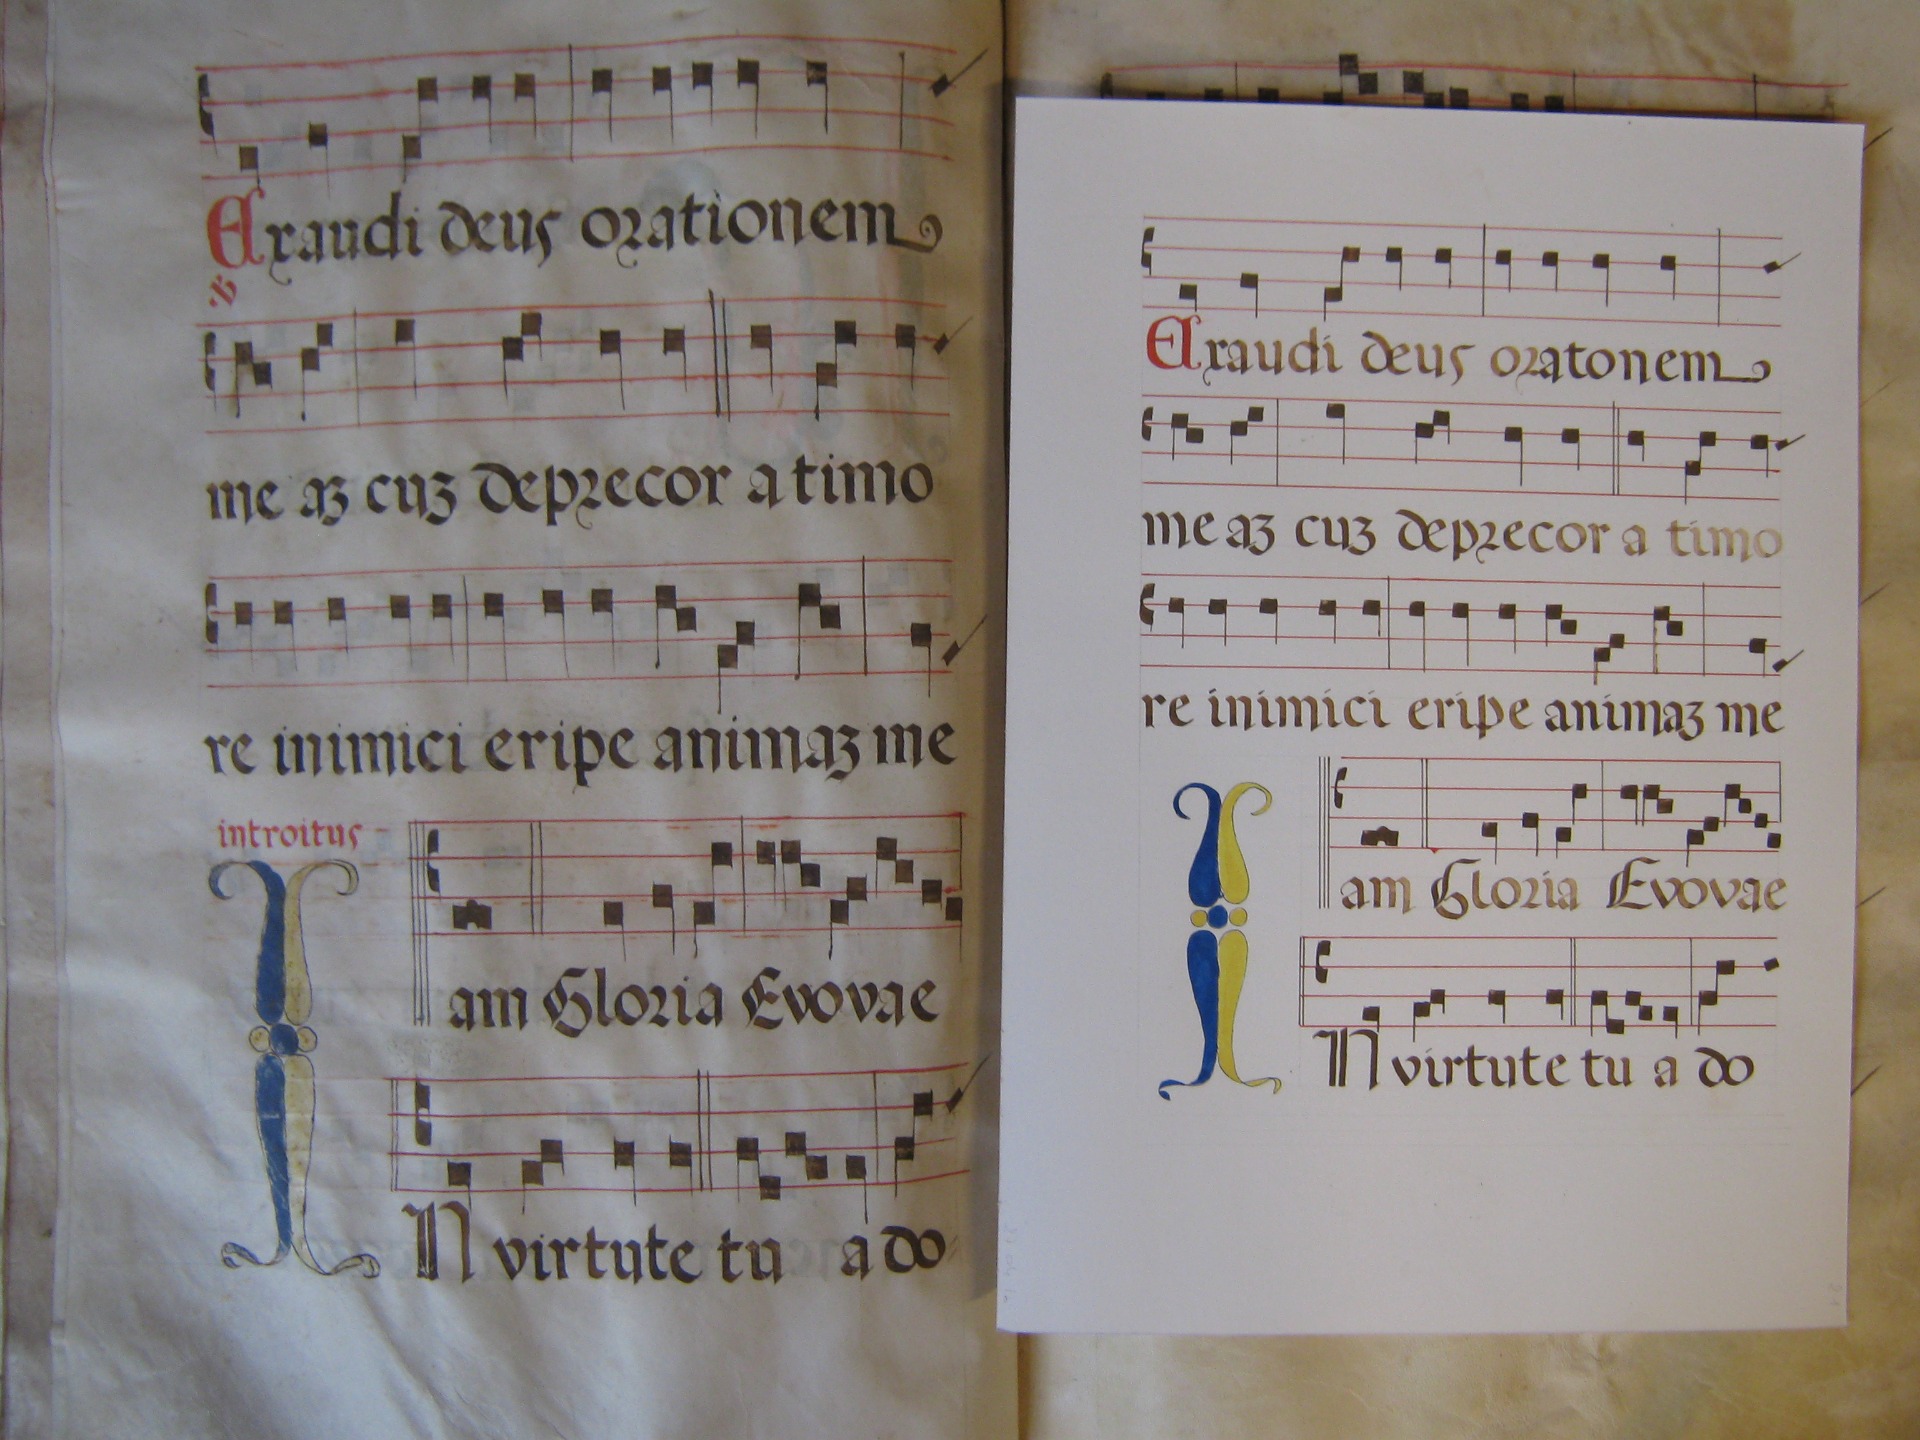 Exaudi deus orationem
℣
me aʒ cuʒ deprecor a timo
re inimici eripe animaʒ me
introitus
am Gloria Evovae
IN virtute tu a do
Exaudi deus oratonem
me aʒ cuʒ deprecor a timo
re inimici eripe animaʒ me
am Gloria Evovae
IN virtute tu a do